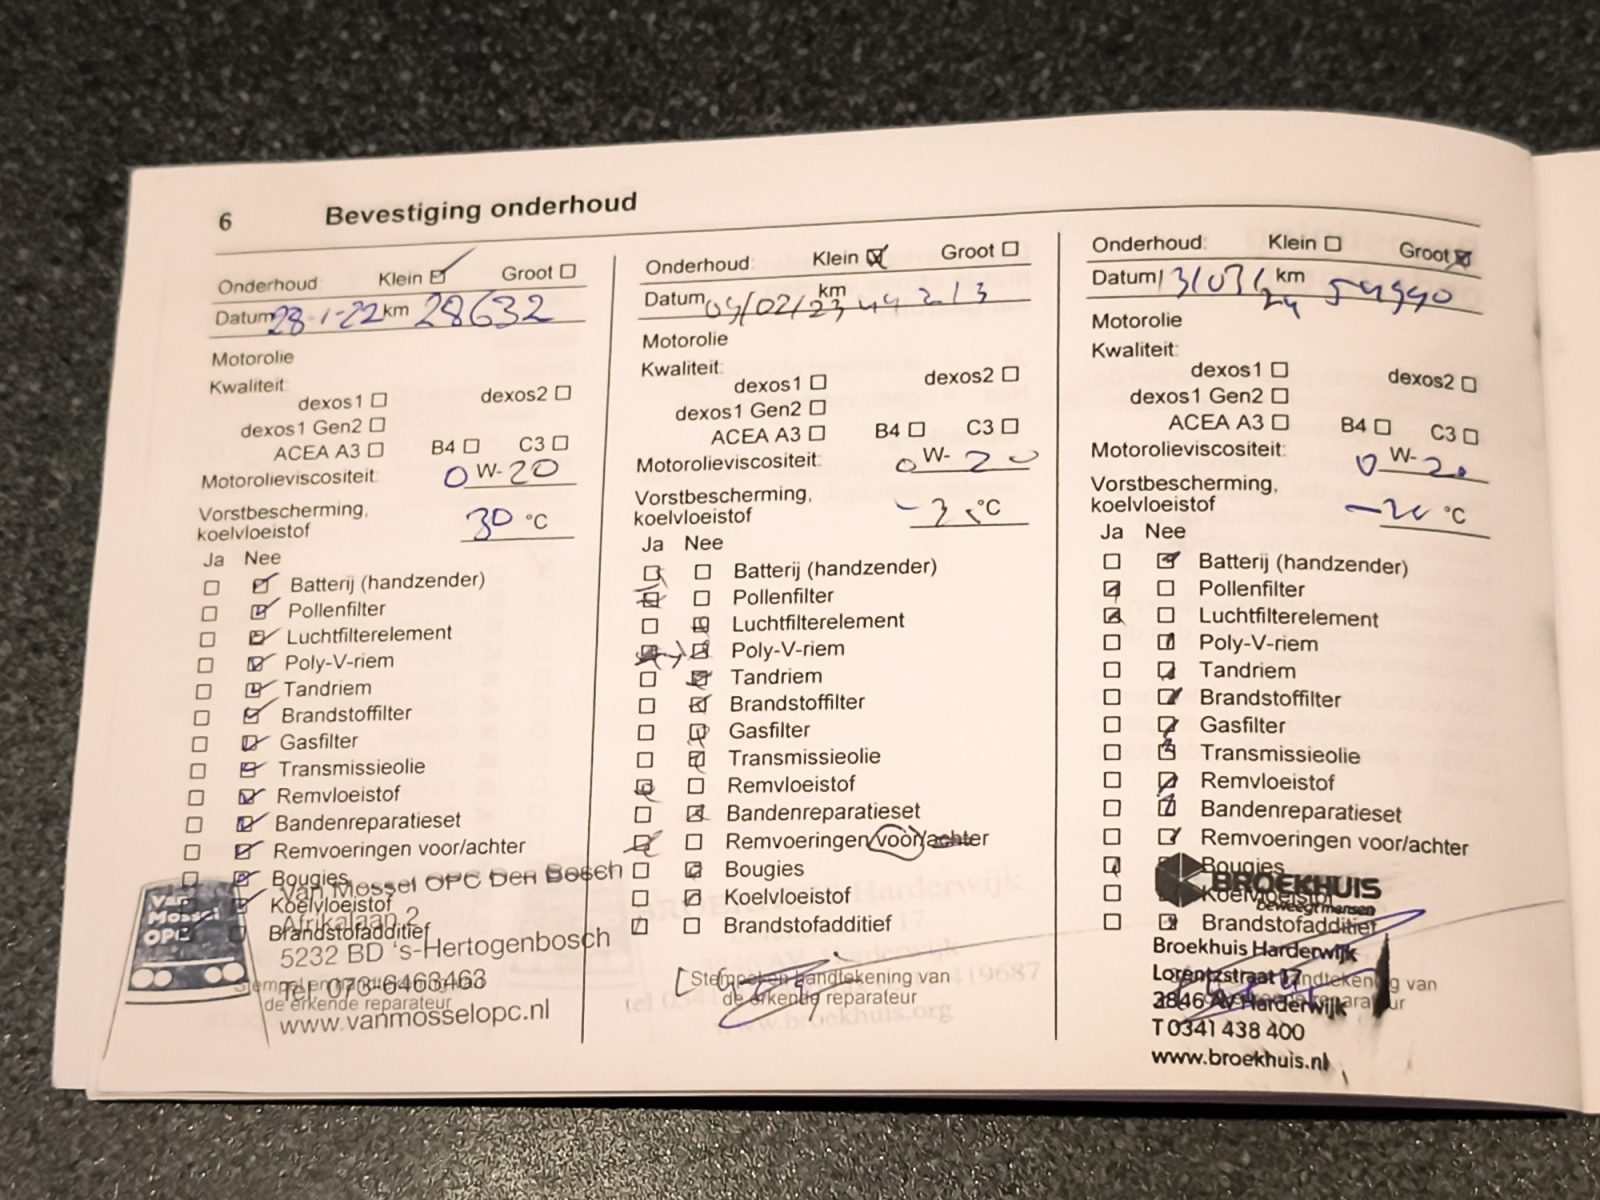 6 Bevestiging onderhoud
Onderhoud: Klein ☑ Groot ☐
Datum 28-1-22 km 28632
Motorolie
Kwaliteit:
dexos1 ☐ dexos2 ☐
dexos1 Gen2 ☐
ACEA A3 ☐ B4 ☐ C3 ☐
Motorolieviscositeit: 0 W- 20
Vorstbescherming,
koelvloeistof 30 °C
Ja Nee
☐ ☑ Batterij (handzender)
☐ ☑ Pollenfilter
☐ ☑ Luchtfilterelement
☐ ☑ Poly-V-riem
☐ ☑ Tandriem
☐ ☑ Brandstoffilter
☐ ☑ Gasfilter
☐ ☑ Transmissieolie
☐ ☑ Remvloeistof
☐ ☑ Bandenreparatieset
☐ ☑ Remvoeringen voor/achter
☐ ☑ Bougies
Koelvloeistof
Brandstofadditief
Stempel en
de erkende reparateur
Van Mossel OPC
Van Mossel OPC Den Bosch
Afrikalaan 2
5232 BD 's-Hertogenbosch
Tel. 073-6463463
www.vanmosselopc.nl
Onderhoud: Klein ☒ Groot ☐
Datum /02/23 km 44 213
Motorolie
Kwaliteit:
dexos1 ☐ dexos2 ☐
dexos1 Gen2 ☐
ACEA A3 ☐ B4 ☐ C3 ☐
Motorolieviscositeit: 0 W- 20
Vorstbescherming,
koelvloeistof °C
Ja Nee
☑ ☐ Batterij (handzender)
☑ ☐ Pollenfilter
☐ ☑ Luchtfilterelement
☑ ☑ Poly-V-riem
☐ ☑ Tandriem
☐ ☑ Brandstoffilter
☐ ☑ Gasfilter
☐ ☑ Transmissieolie
☑ ☐ Remvloeistof
☐ ☑ Bandenreparatieset
☑ ☐ Remvoeringen voor/achter
☐ ☑ Bougies
☐ ☑ Koelvloeistof
☑ ☐ Brandstofadditief
Stempel en handtekening van
de erkende reparateur
Onderhoud: Klein ☐ Groot ☒
Datum 13/03/24 km 54990
Motorolie
Kwaliteit:
dexos1 ☐ dexos2 ☐
dexos1 Gen2 ☐
ACEA A3 ☐ B4 ☐ C3 ☐
Motorolieviscositeit: 0 W- 20
Vorstbescherming,
koelvloeistof °C
Ja Nee
☐ ☑ Batterij (handzender)
☑ ☐ Pollenfilter
☑ ☐ Luchtfilterelement
☐ ☑ Poly-V-riem
☐ ☑ Tandriem
☐ ☑ Brandstoffilter
☐ ☑ Gasfilter
☐ ☑ Transmissieolie
☐ ☑ Remvloeistof
☐ ☑ Bandenreparatieset
☐ ☑ Remvoeringen voor/achter
☑ Bougies
☐ Koelvloeistof
☐ ☑ Brandstofadditief
handtekening van
reparateur
BROEKHUIS
beweegt mensen
Broekhuis Harderwijk
Lorentzstraat 17
3846 AV Harderwijk
T 0341 438 400
www.broekhuis.nl